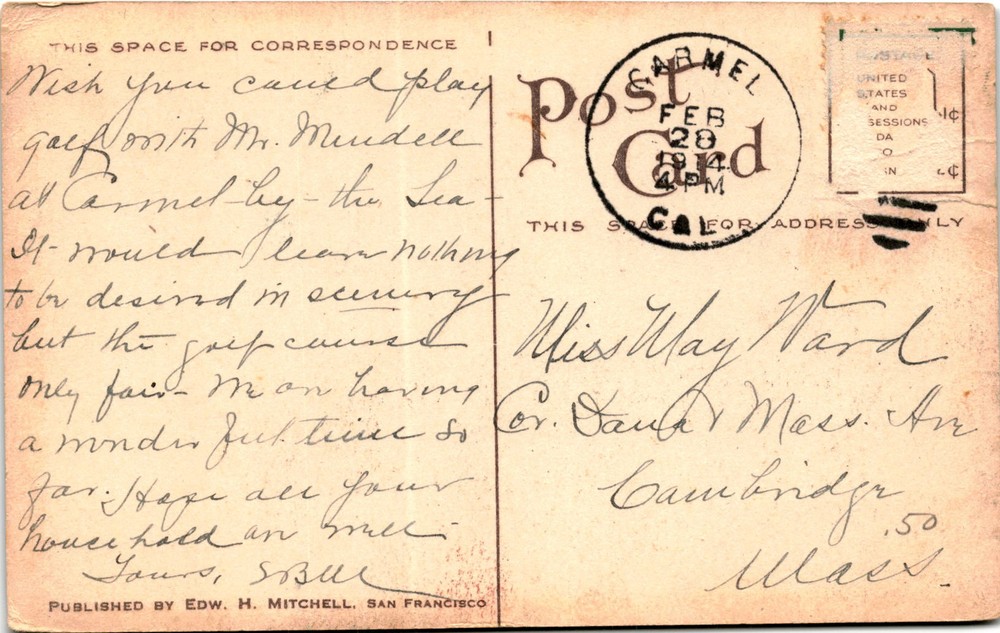 THIS SPACE FOR CORRESPONDENCE
Wish you could play
golf with Mr. Mendell
at Carmel-by-the Sea-
It would leave nothing
to be desired in scenery
but the golf course
only fair- We are having
a wonderful time so
far. Hope all your
household are well-
Yours,
PUBLISHED BY EDW. H. MITCHELL, SAN FRANCISCO
Post
Card
CARMEL
FEB
28
1914
4 PM
CAL
POSTAGE
UNITED
STATES
AND
SESSIONS
1¢
¢
THIS SPACE FOR ADDRESS ONLY
Miss May Ward
Cor. Dana & Mass. Ave
Cambridge
.50
Mass.